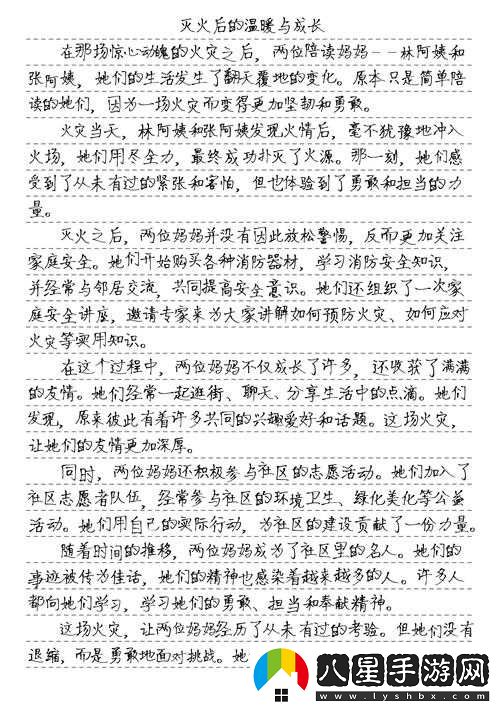 灭火后的温暖与成长
在那场惊心动魄的火灾之后，两位陪读妈妈——林阿姨和
张阿姨，她们的生活发生了翻天覆地的变化。原本只是简单陪
读的她们，因为一场火灾而变得更加坚韧和勇敢。
火灾当天，林阿姨和张阿姨发现火情后，毫不犹豫地冲入
火场，她们用尽全力，最终成功扑灭了火源。那一刻，她们感
受到了从未有过的紧张和害怕，但也体验到了勇敢和担当的力
量。
灭火之后，两位妈妈并没有因此放松警惕，反而更加关注
家庭安全。她们开始购买各种消防器材，学习消防安全知识，
并经常与邻居交流，共同提高安全意识。她们还组织了一次家
庭安全讲座，邀请专家来为大家讲解如何预防火灾、如何应对
火灾等实用知识。
在这个过程中，两位妈妈不仅成长了许多，还收获了满满
的友情。她们经常一起逛街、聊天、分享生活中的点滴。她们
发现，原来彼此有着许多共同的兴趣爱好和话题。这场火灾，
让她们的友情更加深厚。
同时，两位妈妈还积极参与社区的志愿活动。她们加入了
社区志愿者队伍，经常参与社区的环境卫生、绿化美化等公益
活动。她们用自己的实际行动，为社区的建设贡献了一份力量。
随着时间的推移，两位妈妈成为了社区里的名人。她们的
事迹被传为佳话，她们的精神也感染着越来越多的人。许多人
都向她们学习，学习她们的勇敢、担当和奉献精神。
这场火灾，让两位妈妈经历了从未有过的考验。但她们没有
退缩，而是勇敢地面对挑战。她
八星手游网
www.lyshbx.com